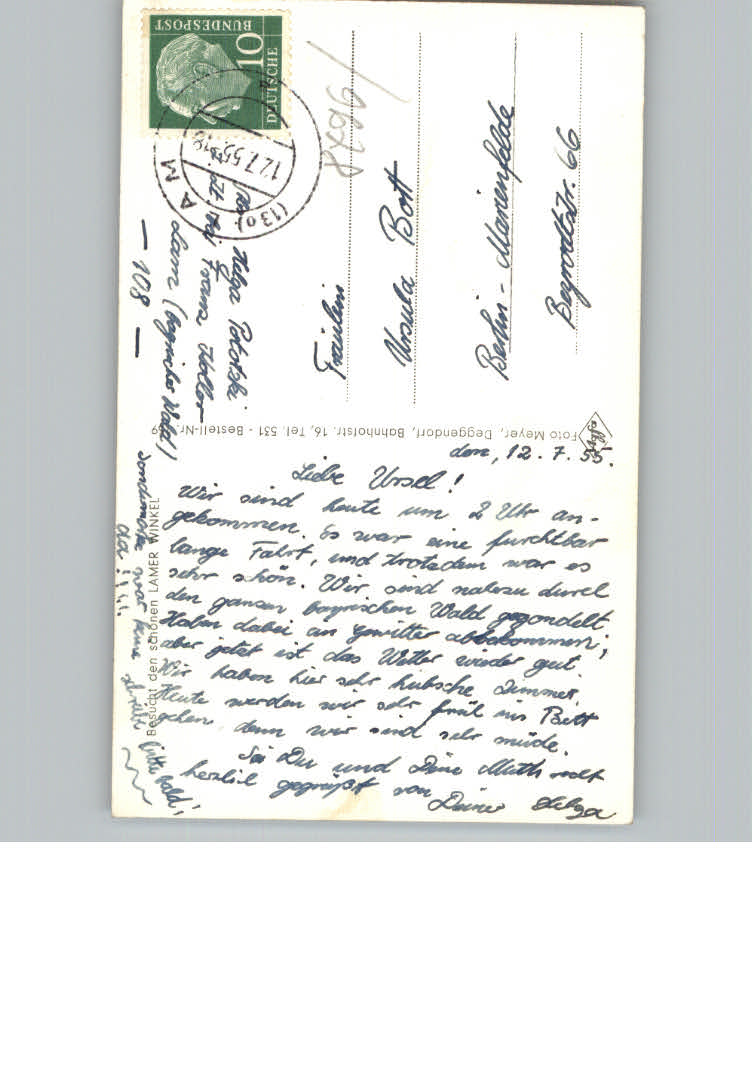 DEUTSCHE
BUNDESPOST
10
(13a)
LAM
12.7.55-18
8796/
Fräulein
Ursula Bott
Berlin-Marienfelde
66
Helga
Franz Koller
Lam (bayrischer Wald)
- 108 -
Foto Meyer, Deggendorf, Bahnhofstr. 16, Tel. 531 - Bestell-Nr.
Agfa
Besucht den schönen LAMER WINKEL
den, 12.7.55.
Liebe Ursel!
Wir sind heute um 2 Uhr an-
gekommen. Es war eine furchtbar
lange Fahrt, und trotzdem war es
sehr schön. Wir sind nahezu durch
den ganzen bayrischen Wald gegondelt.
Haben dabei an Gewitter abbekommen;
aber jetzt ist das Wetter wieder gut.
Wir haben hier sehr hübsche Zimmer.
Heute werden wir sehr früh ins Bett
gehen, denn wir sind sehr müde.
Sei Du und Deine Mutti recht
herzlich gegrüßt von
Deiner Helga
schreibe bitte bald!
war keine
da!!!!